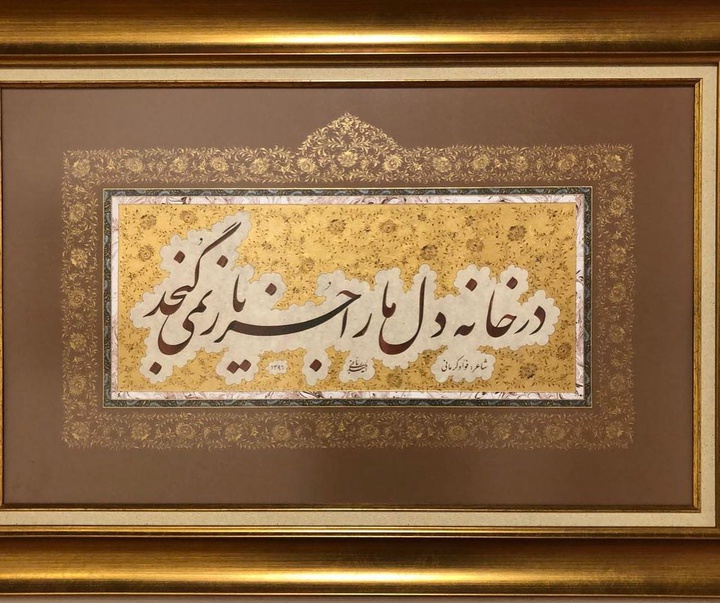 در خانه دل ما را جز یار نمی گنجد
شاعر: فواد کرمانی
۱۳۹۶